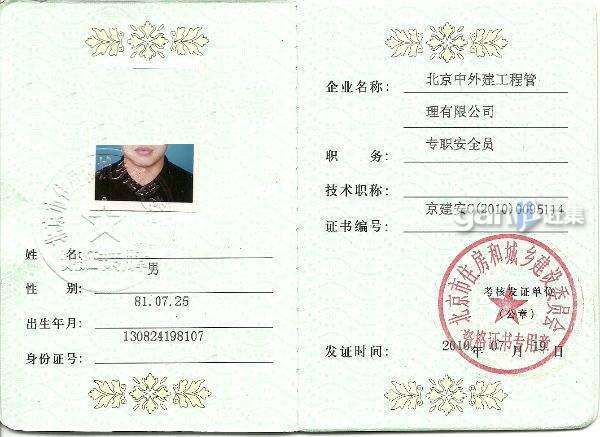 姓 名:
男
性 别:
81.07.25
出生年月:
130824198107
身份证号:
企业名称:
北京中外建工程管
理有限公司
职 务:
专职安全员
技术职称:
证书编号:
京建安C(2010)0095114
ganji 赶集
北京市住房和城乡建设委员会
考核发证单位
(公章)
资格证书专用章
发证时间:
2010年 07月 19日